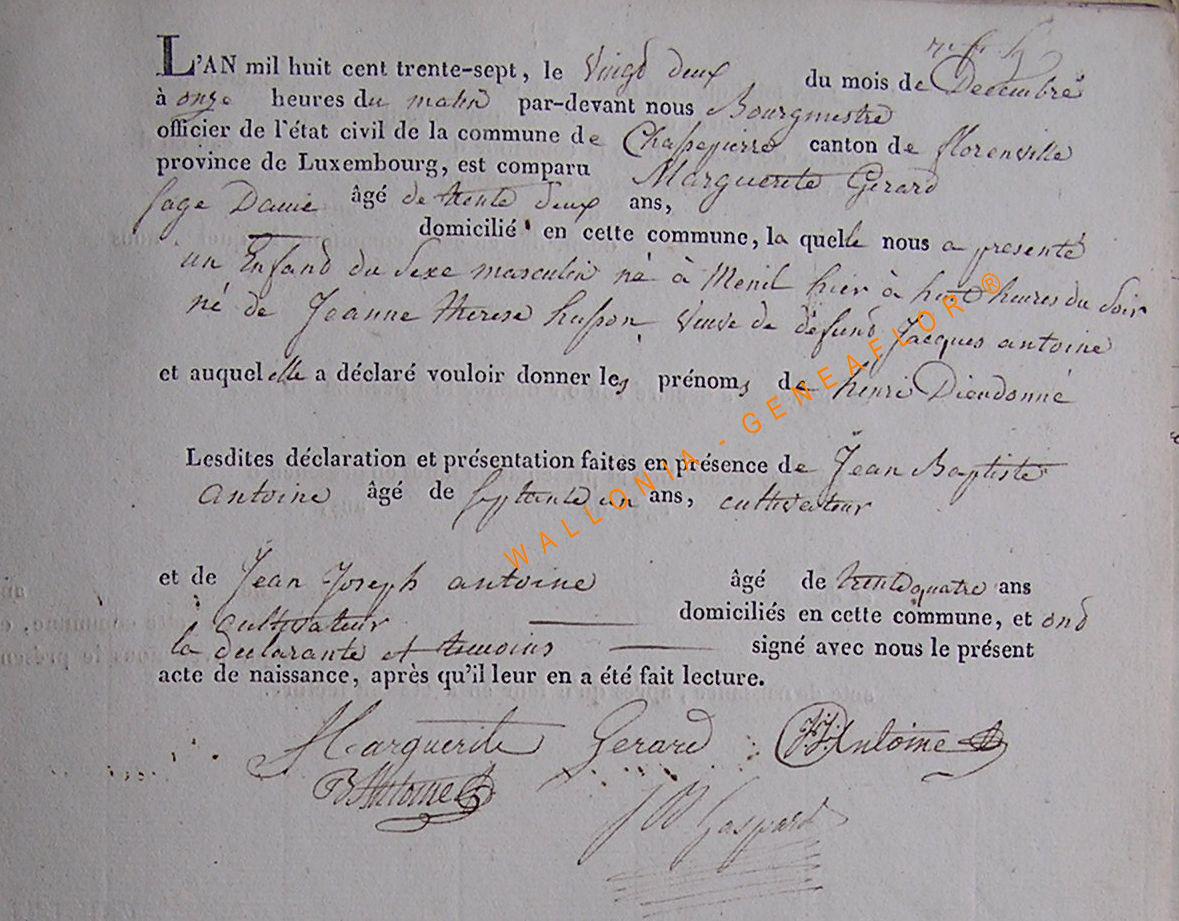 L'AN mil huit cent trente-sept, le vingt deux du mois de Decembre
à onze heures du matin par-devant nous Bourgmestre
officier de l'état civil de la commune de Chassepierre canton de florenville
province de Luxembourg, est comparu Marguerite Gerard
Sage Dame âgé de trente deux ans,
domicilié en cette commune, la quelle nous a presenté
un Enfant du Sexe masculin né à Menil hier à huit heures du Soir
né de Jeanne therese husson veuve de défunt Jacques antoine
et auquel elle a déclaré vouloir donner les prénoms de henri Dieudonné
Lesdites déclaration et présentation faites en présence de Jean Baptiste
antoine âgé de septante un ans, cultivateur
et de Jean Joseph antoine âgé de trente quatre ans
cultivateur domiciliés en cette commune, et ont
la déclarante et temoins signé avec nous le présent
acte de naissance, après qu'il leur en a été fait lecture.
Marguerite Gerard JJ Antoine
B Antoine
JB Gaspard
WALLONIA - GENEAFLOR ®